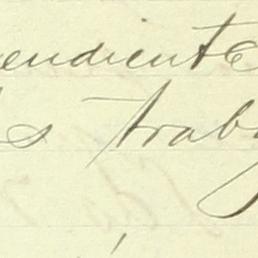 endiente
s trab